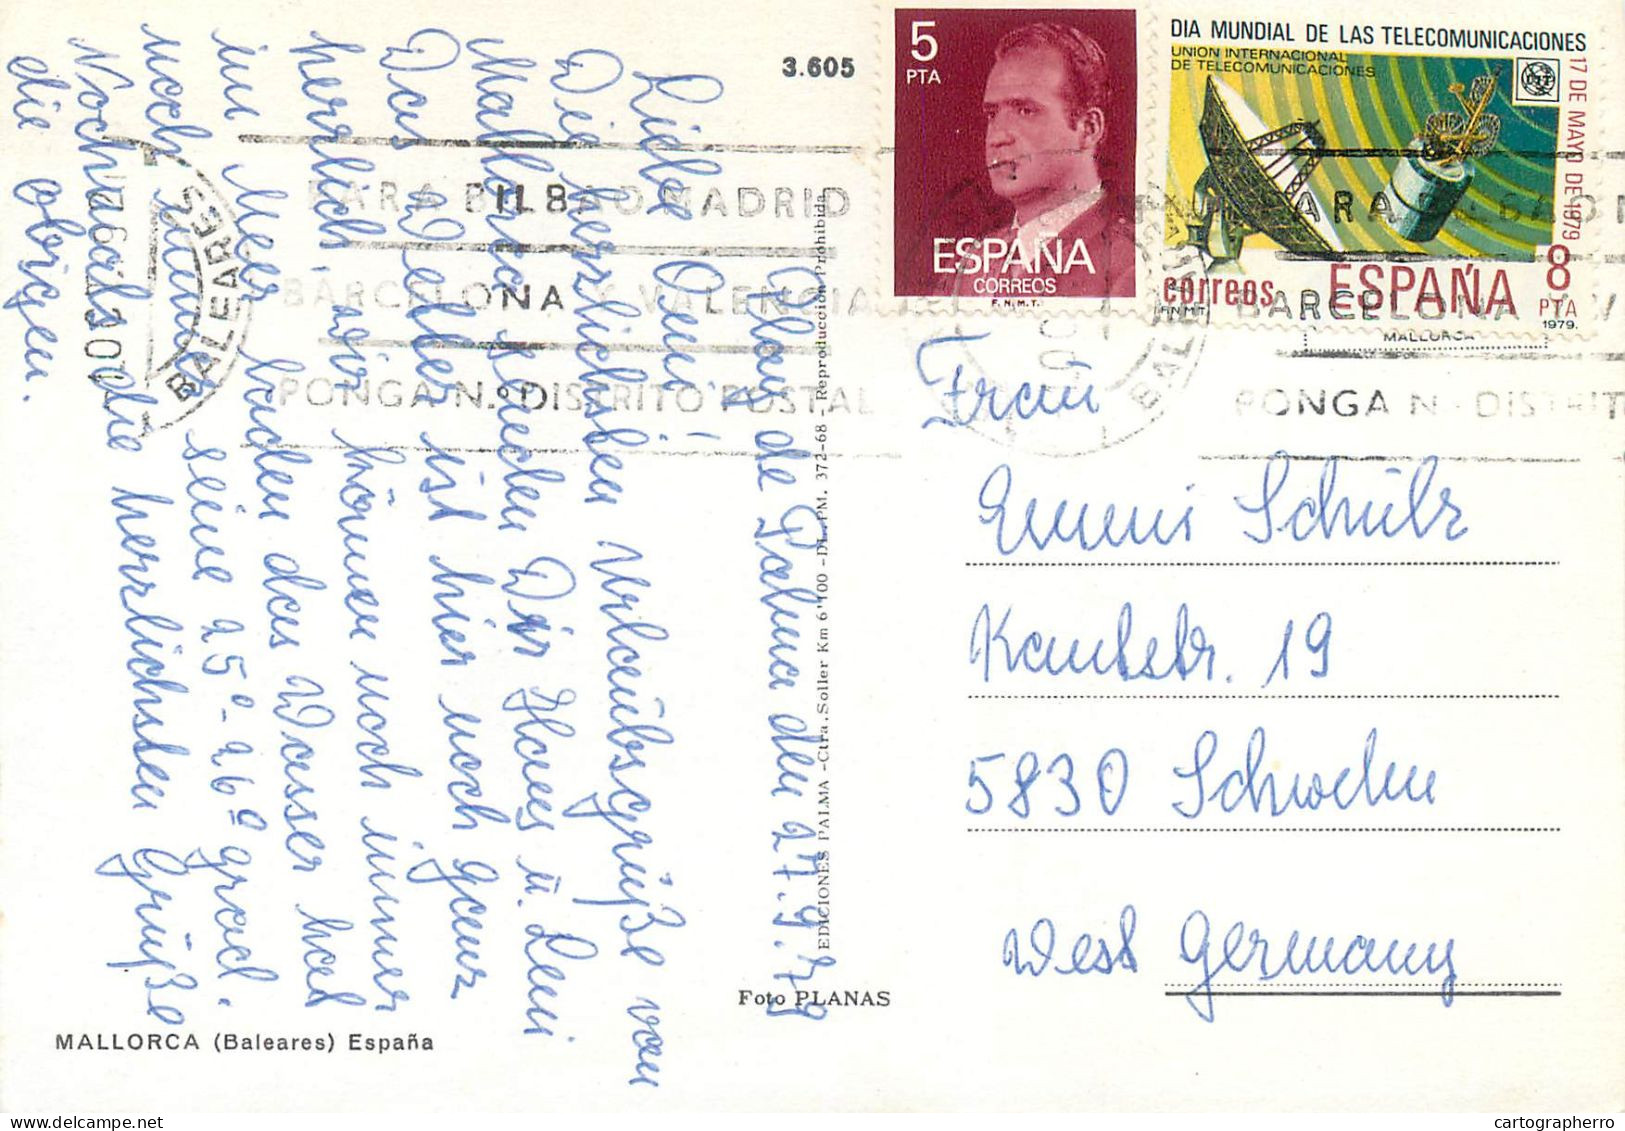 3.605
Playa de Palma den 27.9.79
Liebe Omi!
Die herzlichsten Urlaubsgrüße von
Mallorca senden Dir Hans u. Leni
Das Wetter ist hier noch ganz
herrlich, wir können noch immer
im Meer baden das Wasser hat
noch immer seine 25°-26° grad.
Nochmals die herrlichsten Grüße
die obigen.
MALLORCA (Baleares) España
Foto PLANAS
EDICIONES PALMA - Ctra. Soller Km 6'100 - DL. PM. 372-68 - Reproducción Prohibida
5
PTA
ESPAÑA
CORREOS
F.N.M.T.
DIA MUNDIAL DE LAS TELECOMUNICACIONES
UNION INTERNACIONAL
DE TELECOMUNICACIONES
17 DE MAYO DE 1979
correos ESPAÑA 8
PTA
F.N.M.T.
1979.
MALLORCA
PARA BILBAO MADRID
BARCELONA Y VALENCIA
PONGA N.º DISTRITO POSTAL
BALEARES
PARA BILBAO
BARCELONA Y V
PONGA N.º DISTRIT
Frau
Emmi Schülz
Kantstr. 19
5830 Schwelm
West Germany
cartographerro